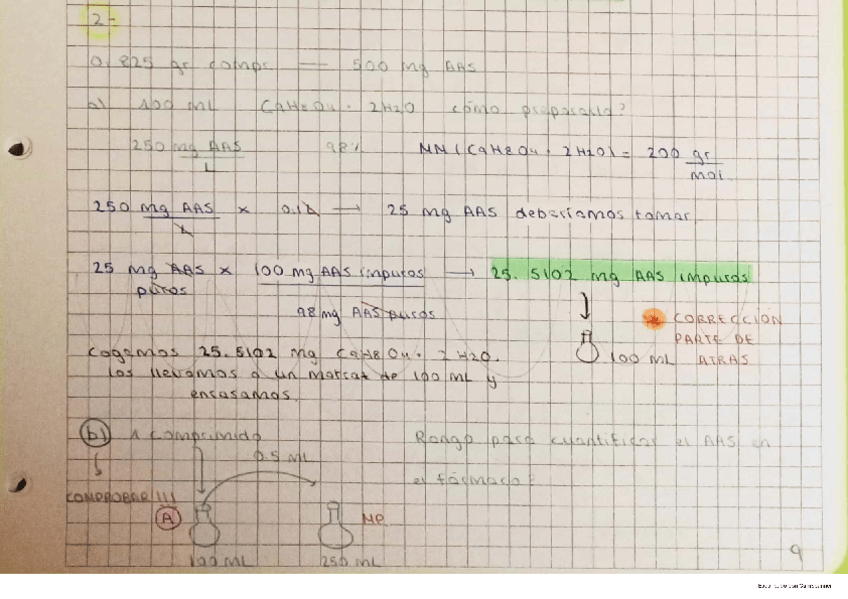 2-
0.825 gr comp. — 500 mg AAS
a) 100 mL C9H8O4 · 2H2O cómo prepararía?
250 mg AAS / L 98% MM (C9H8O4 · 2H2O) = 200 gr / mol.
250 mg AAS / L × 0.1L → 25 mg AAS deberíamos tomar.
25 mg AAS puros × 100 mg AAS impuros / 98 mg AAS puros → 25.5102 mg AAS impuros
* CORRECCIÓN
PARTE DE
100 mL ATRAS
Cogemos 25.5102 mg C9H8O4 · 2H2O.
los llevamos a un matraz de 100 mL y
enrasamos.
b) 1 comprimido Rango para cuantificar el AAS en
0.5 mL el fármaco?
COMPROBAR!!!
A MP.
100 mL 250 mL
9